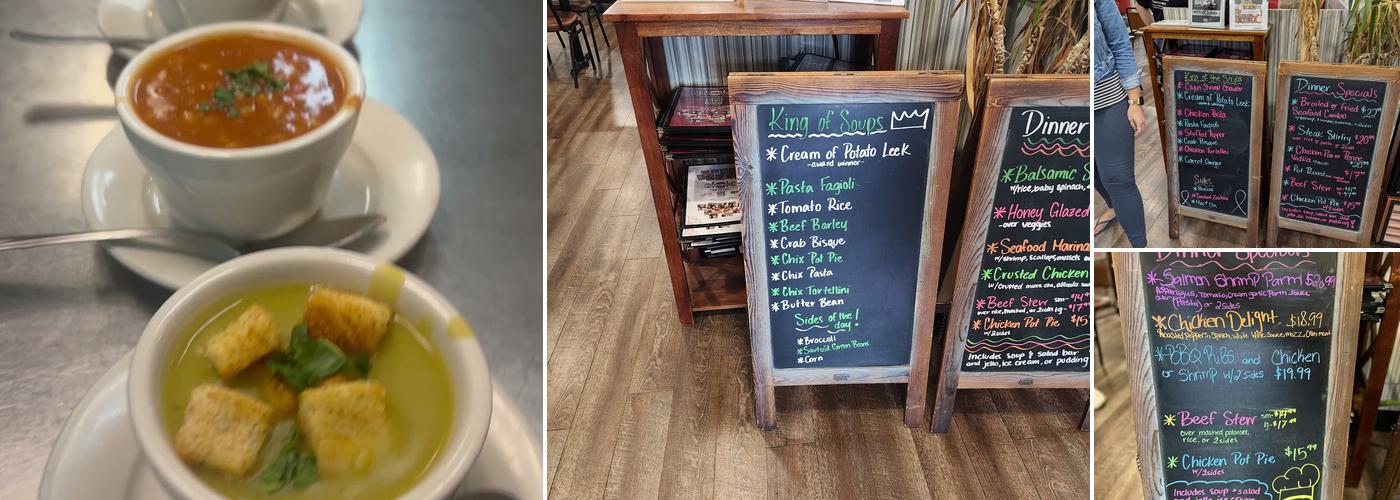 King of Soups
* Cream of Potato Leek
-award winner-
* Pasta Fagioli
* Tomato Rice
* Beef Barley
* Crab Bisque
* Chix Pot Pie
* Chix Pasta
* Chix Tortellini
* Butter Bean
Sides of the
day!
* Broccoli
* Sauteed Green Beans
* Corn
Dinner
* Balsamic S
w/rice, baby spinach,
* Honey Glazed
-over veggies
* Seafood Marina
w/shrimp, scallops, mussels
* Crusted Chicken
* Beef Stew sm-$14.99
over rice, mashed, or 2 sides lg-$17
* Chicken Pot Pie $15
w/2 sides
Includes soup & salad bar
and jello, ice cream, or pudding
King of the Soups
* Cajun Shrimp Chowder
* Cream of Potato Leek
-award winning-
* Chicken Pasta
* Pasta Fagioli
* Stuffed Pepper
* Crab Bisque
* Chicken Tortellini
* Carrot Ginger
Sides
* Broccoli
* Sauteed Zucchini
* Mac & Chz
Dinner Specials
* Broiled or Fried $22.99
Seafood Combo
* Steak Stirfry $20.99
* Chicken Parm Penne
Vodka
* Pot Roast $17.99
* Beef Stew
* Chicken Pot Pie $15.99
w/2 sides
Includes soup, salad bar
and jello, ice cream or pudding
Dinner Specials
* Salmon Shrimp Parm $20.99
Asparagus, Tomato, cream garlic Parm sauce
over (Pasta) or 2 sides
* Chicken Delight - $18.99
Roasted Peppers, Spinach, White Wine Sauce, mozz,
* BBQ Ribs and Chicken
or Shrimp w/2 sides $19.99
* Beef Stew sm-$14.99
lg-$17.99
over mashed potatoes,
rice, or 2 sides
* Chicken Pot Pie $15.99
w/2 sides
Includes soup & salad
and jello, ice cream